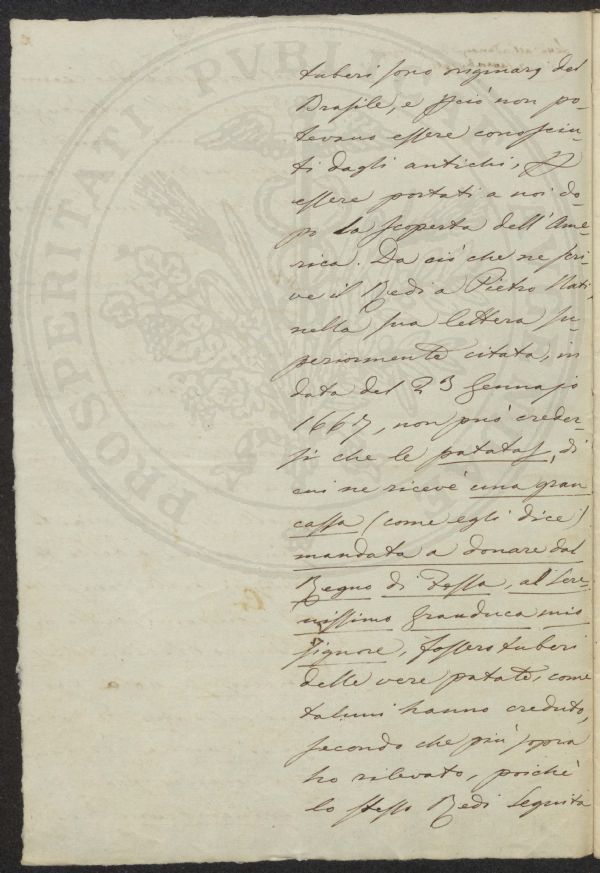 PROSPERITATI PVBLICAE
tuberi sono originarj del
Brasile, e perciò non po-
tevano essere conosciu-
ti dagli antichi, per
essere portati a noi do-
po la scoperta dell'Ame-
rica. Da ciò che ne scri-
ve il Redi a Pietro Nati,
nella sua lettera su-
periormente citata, in
data del 23 Gennajo
1667, non può creder-
si che le patatas, di
cui ne ricevè una gran
cassa (come egli dice)
mandata a donare dal
Regno di Fessa, al Sere-
nissimo Granduca mio
signore, fossero tuberi
delle vere patate, come
taluni hanno creduto,
secondo che più sopra
ho rilevato, poichè
lo stesso Redi seguita